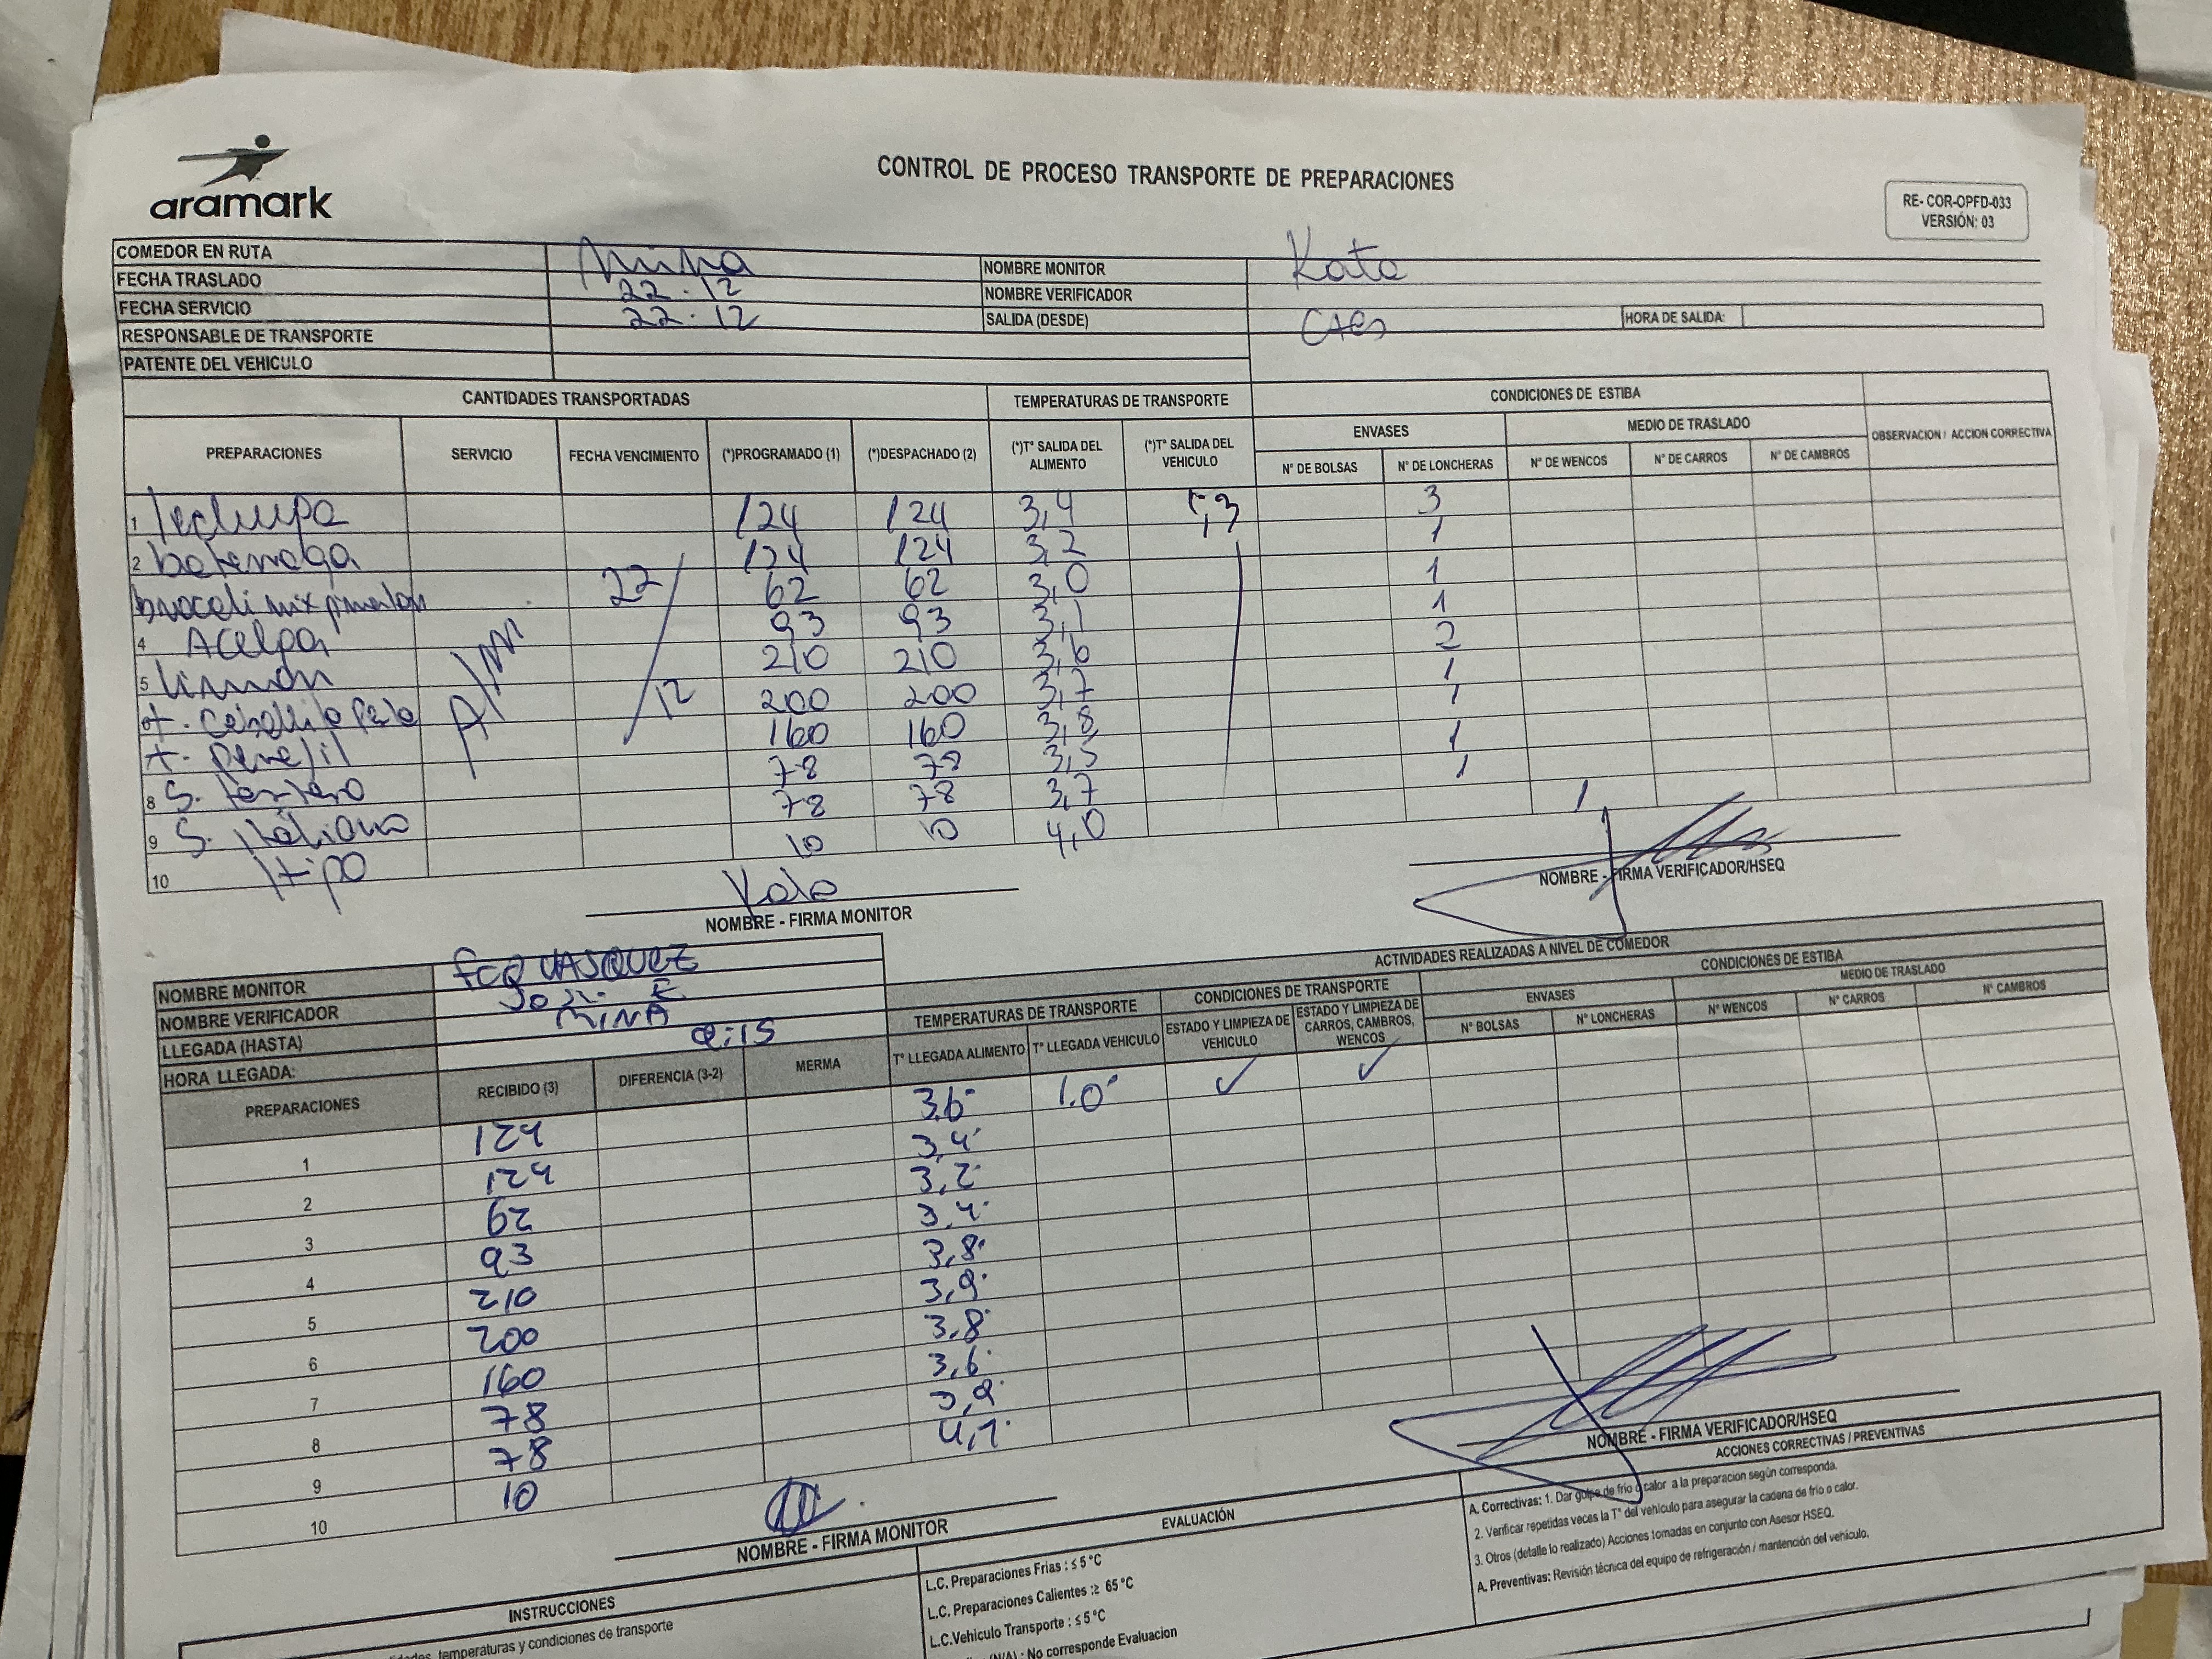 aramark
CONTROL DE PROCESO TRANSPORTE DE PREPARACIONES
RE- COR-OPFD-033
VERSIÓN: 03
COMEDOR EN RUTA Mina NOMBRE MONITOR Kata
FECHA TRASLADO 22-12 NOMBRE VERIFICADOR
FECHA SERVICIO 22-12 SALIDA (DESDE) HORA DE SALIDA:
RESPONSABLE DE TRANSPORTE
PATENTE DEL VEHICULO
CANTIDADES TRANSPORTADAS TEMPERATURAS DE TRANSPORTE CONDICIONES DE ESTIBA
ENVASES MEDIO DE TRASLADO
PREPARACIONES SERVICIO FECHA VENCIMIENTO (*)PROGRAMADO (1) (*)DESPACHADO (2) (*)T° SALIDA DEL ALIMENTO (*)T° SALIDA DEL VEHICULO N° DE BOLSAS N° DE LONCHERAS N° DE WENCOS N° DE CARROS N° DE CAMBROS OBSERVACION / ACCION CORRECTIVA
1 lechuga 124 124 3,4 3
2 beterraga 124 124 3,2 1
brocoli mix pimenton 22/12 62 62 3,0 1
4 Acelga 93 93 3,1 1
5 limon 210 210 3,6 2
200 200 3,7 1
t. perejil 160 160 3,8 1
8 S. 78 78 3,5 1
9 S. Italiana 78 78 3,7 1
10 10 10 4,0 1
NOMBRE - FIRMA MONITOR
NOMBRE - FIRMA VERIFICADOR/HSEQ
NOMBRE MONITOR FCO VASQUEZ
NOMBRE VERIFICADOR
LLEGADA (HASTA) MINA
HORA LLEGADA:
ACTIVIDADES REALIZADAS A NIVEL DE COMEDOR
TEMPERATURAS DE TRANSPORTE CONDICIONES DE TRANSPORTE CONDICIONES DE ESTIBA
ENVASES MEDIO DE TRASLADO
PREPARACIONES RECIBIDO (3) DIFERENCIA (3-2) MERMA T° LLEGADA ALIMENTO T° LLEGADA VEHICULO ESTADO Y LIMPIEZA DE VEHICULO ESTADO Y LIMPIEZA DE CARROS, CAMBROS, WENCOS N° BOLSAS N° LONCHERAS N° WENCOS N° CARROS N° CAMBROS
1 124 3.6° 1.0° ✓ ✓
2 124 3,4°
3 62 3,2°
4 93 3,4°
5 210 3,8°
6 200 3,9°
7 160 3,8°
8 78 3,6°
9 78 3,9°
10 10 4,1°
NOMBRE - FIRMA MONITOR
NOMBRE - FIRMA VERIFICADOR/HSEQ
INSTRUCCIONES
temperaturas y condiciones de transporte
EVALUACIÓN
L.C. Preparaciones Frias : ≤ 5 °C
L.C. Preparaciones Calientes :≥ 65 °C
L.C.Vehiculo Transporte : ≤ 5 °C
(N/A) : No corresponde Evaluacion
ACCIONES CORRECTIVAS / PREVENTIVAS
A. Correctivas: 1. Dar golpe de frio o calor a la preparacion según corresponda.
2. Verificar repetidas veces la T° del vehículo para asegurar la cadena de frio o calor.
3. Otros (detalle lo realizado) Acciones tomadas en conjunto con Asesor HSEQ.
A. Preventivas: Revisión técnica del equipo de refrigeración / mantención del vehículo.